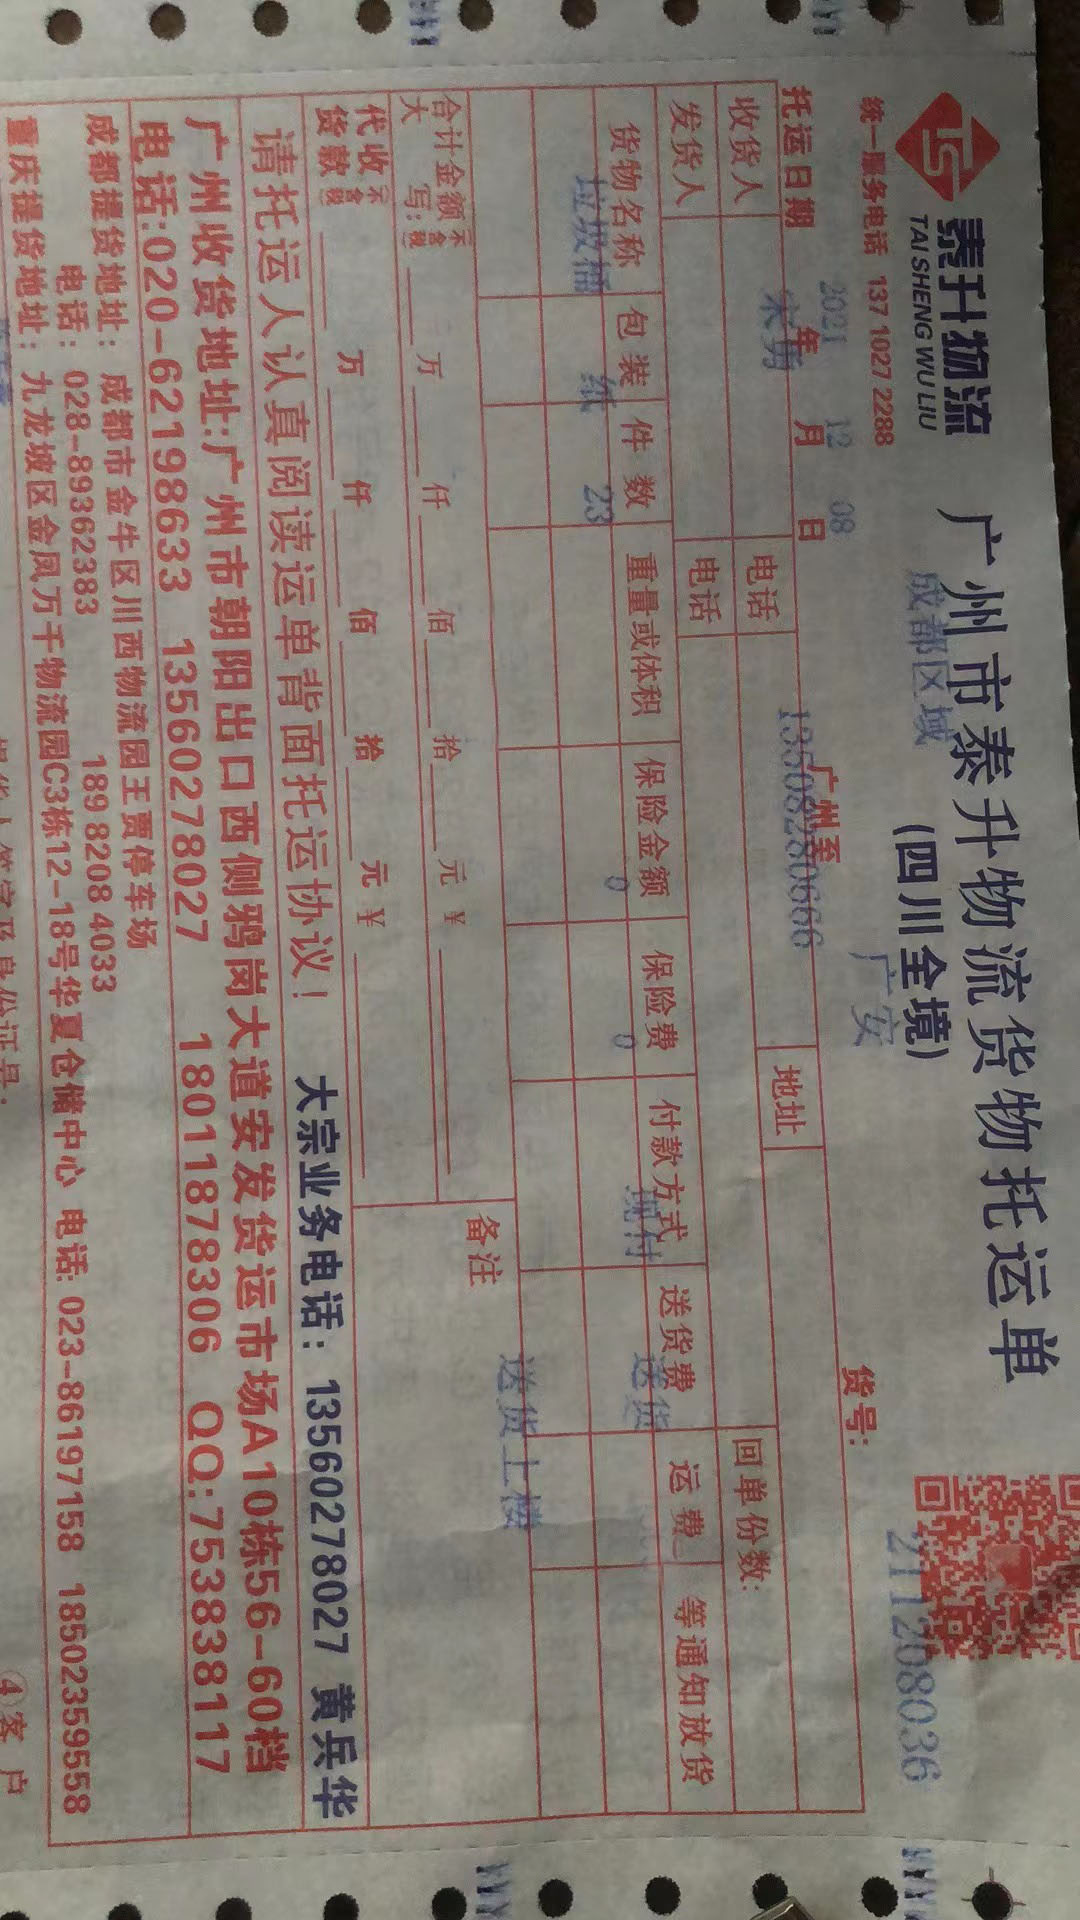 泰升物流
TAI SHENG WU LIU
广州市泰升物流货物托运单
成都区域
(四川全境)
统一服务电话 137 1027 2288
货号:
211208036
托运日期 2021年 12月 08日
广州至 广安
回单份数:
收货人 电话 13508280666 地址
发货人 电话
货物名称 包装 件数 重量或体积 保险金额 保险费 付款方式 送货费 运费 等通知放货
垃圾桶 纸 23 0 0 现付 送货
合计金额 不含税
大 写: 万 仟 佰 拾 元 ¥
备注 送货上楼
代收 不含税
货款 万 仟 佰 拾 元 ¥
请托运人认真阅读运单背面托运协议! 大宗业务电话: 13560278027 黄兵华
广州收货地址:广州市朝阳出口西侧鸦岗大道安发货运市场A10栋56-60档
电话:020-62198633 13560278027 18011878306 QQ:753838117
成都提货地址: 成都市金牛区川西物流园王贾停车场
电话: 028-89362383 189 8208 4033
重庆提货地址: 九龙坡区金凤万千物流园C3栋12-18号华夏仓储中心 电话: 023-86197158 18502359558
④客户